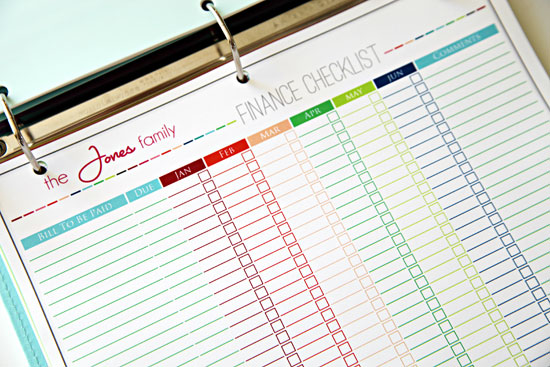 the Jones family
FINANCE CHECKLIST
BILL TO BE PAID DUE JAN FEB MAR APR MAY JUN COMMENTS